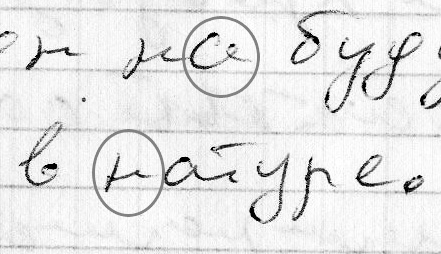 он на буду
в натуре.